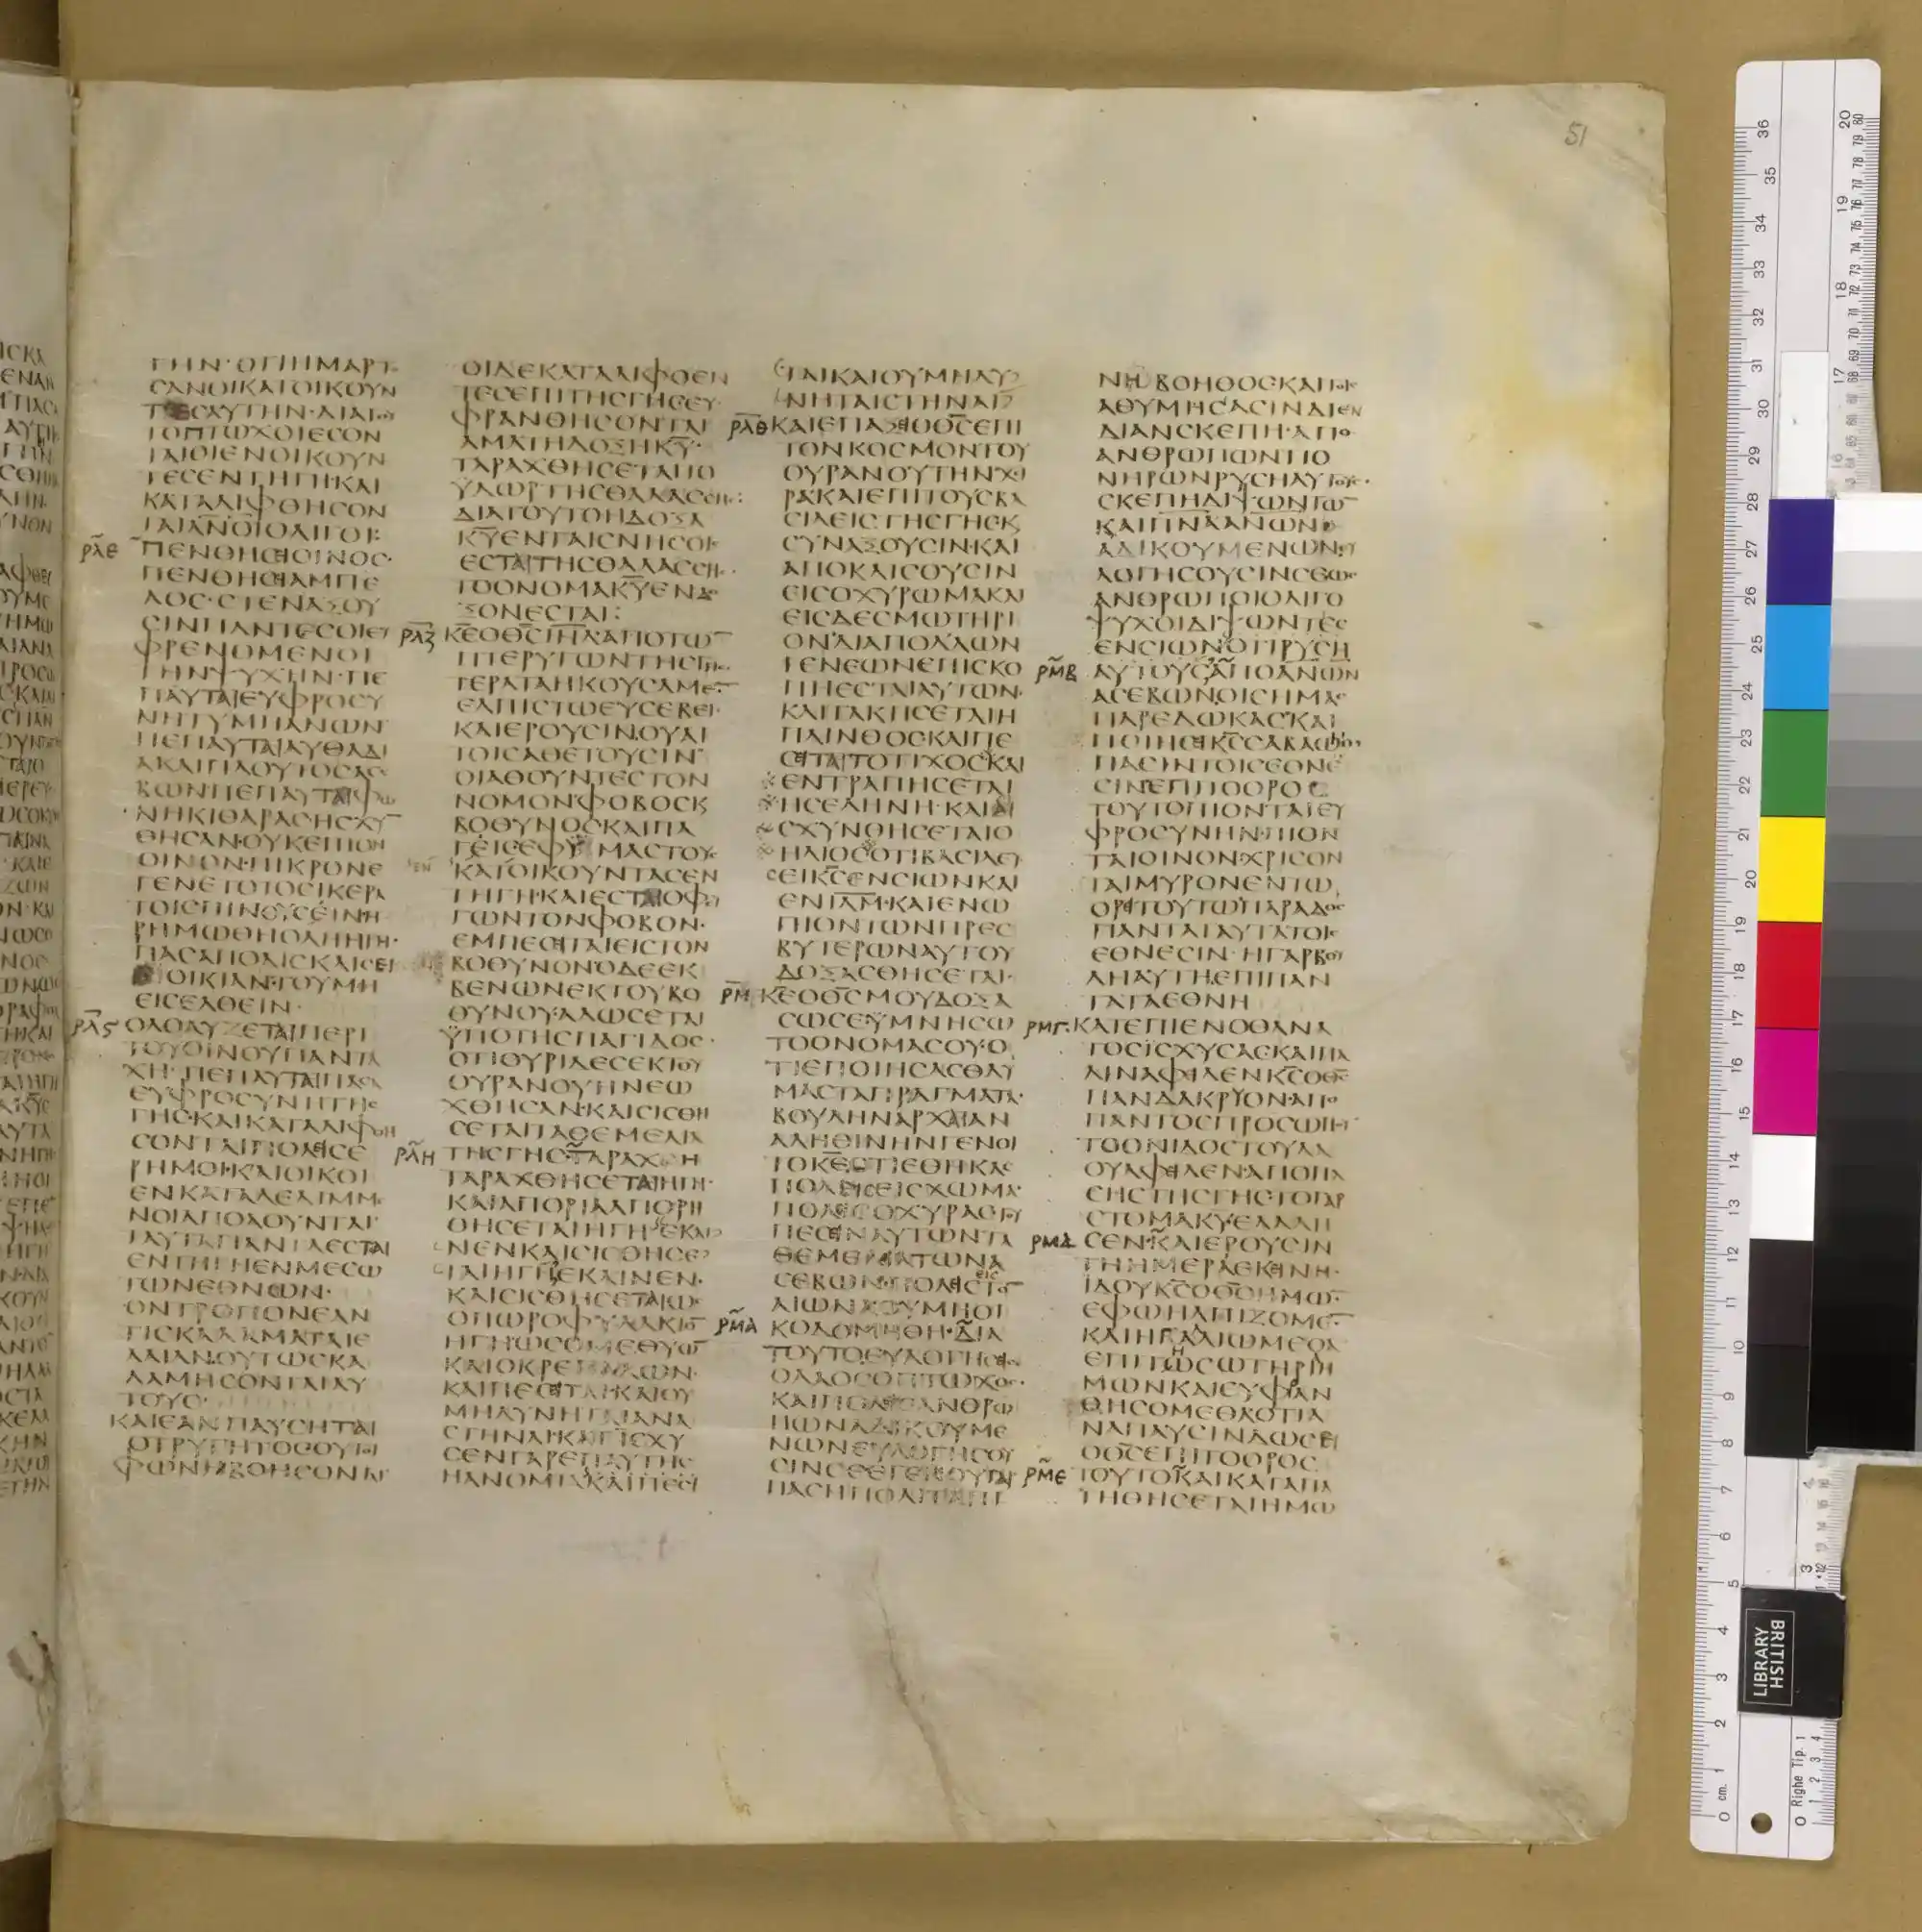 ΤΗΝ·ΟΤΙΗΜΑΡΤ
ϹΑΝΟΙΚΑΤΟΙΚΟΥΝ
ΤΕϹΑΥΤΗΝ·ΔΙΑΤΟΥ
ΤΟΠΤΩΧΟΙΕϹΟΝ
ΤΑΙΟΙΕΝΟΙΚΟΥΝ
ΤΕϹΕΝΤΗΓΗΚΑΙ
ΚΑΤΑΛΙΦΘΗϹΟΝ
ΤΑΙΑΝΟΙΟΛΙΓΟΙ·
ΡΛΕ ΠΕΝΘΗϹΕΙΟΙΝΟϹ·
ΠΕΝΘΗϹΕΙΑΜΠΕ
ΛΟϹ·ϹΤΕΝΑΞΟΥ
ϹΙΝΠΑΝΤΕϹΟΙΕΥ
ΦΡΕΝΟΜΕΝΟΙ
ΤΗΝΨΥΧΗΝ·ΠΕ
ΠΑΥΤΑΙΕΥΦΡΟϹΥ
ΝΗΤΥΜΠΑΝΩΝ
ΠΕΠΑΥΤΑΙΑΥΘΑΔΙ
ΑΚΑΙΠΛΟΥΤΟϹΑϹΕ
ΒΩΝΠΕΠΑΥΤΑΙΦΩ
ΝΗΚΙΘΑΡΑϹΗϹΧΥ̅
ΘΗϹΑΝ·ΟΥΚΕΠΙΟΝ
ΟΙΝΟΝ·ΠΙΚΡΟΝΕ
ΓΕΝΕΤΟΤΟϹΙΚΕΡΑ
ΤΟΙϹΠΙΝΟΥϹΕΙΝ·Η
ΡΗΜΩΘΗΟΛΗΗΓΗ·
ΠΑϹΑΠΟΛΙϹΚΛΙϹΕΙ
ΟΙΚΙΑΝ·ΤΟΥΜΗ
ΕΙϹΕΛΘΕΙΝ·
ΡΛϚ ΟΛΟΛΥΖΕΤΑΙΠΕΡΙ
ΤΟΥΟΙΝΟΥΠΑΝΤΑ
ΧΗ·ΠΕΠΑΥΤΑΙΠΑϹΑ
ΕΥΦΡΟϹΥΝΗΤΗϹ
ΓΗϹ·ΚΑΙΚΑΤΑΛΙΦΘΗ
ϹΟΝΤΑΙΠΟΛΕΙϹΕ
ΡΗΜΟΙ·ΚΑΙΟΙΚΟΙ
ΕΝΚΑΤΑΛΕΛΙΜΜΕ
ΝΟΙΑΠΟΛΟΥΝΤΑΙ·
ΤΑΥΤΑΠΑΝΤΑΕϹΤΑΙ
ΕΝΤΗΓΗΕΝΜΕϹΩ
ΤΩΝΕΘΝΩΝ·
ΟΝΤΡΟΠΟΝΕΑΝ
ΤΙϹΚΑΛΑΜΑΤΑΙΕ
ΛΑΙΑΝ·ΟΥΤΩϹΚΑ
ΛΑΜΗϹΟΝΤΑΙΑΥ
ΤΟΥϹ·
ΚΑΙΕΑΝΠΑΥϹΗΤΑΙ
ΟΤΡΥΓΗΤΟϹΟΥΤΟΙ
ΦΩΝΗΒΟΗϹΟΝΤΑΙ
ΟΙΔΕΚΑΤΑΛΙΦΘΕΝ
ΤΕϹΕΠΙΤΗϹΓΗϹΕΥ
ΦΡΑΝΘΗϹΟΝΤΑΙ
ΑΜΑΤΗΔΟΞΗΚ̅Υ̅·
ΤΑΡΑΧΘΗϹΕΤΑΙΤΟ
ΥΔΩΡΤΗϹΘΑΛΑϹϹΗϹ:
ΔΙΑΤΟΥΤΟΗΔΟΞΑ
Κ̅Υ̅ΕΝΤΑΙϹΝΗϹΟΙϹ
ΕϹΤΑΙΤΗϹΘΑΛΑϹϹΗϹ·
ΤΟΟΝΟΜΑΚ̅Υ̅ΕΝΔΟ
ΞΟΝΕϹΤΑΙ:
ΡΛΖ Κ̅Ε̅ΟΘ̅Ϲ̅Ι̅Η̅Λ̅ΑΠΟΤΩ̅
ΠΤΕΡΥΓΩΝΤΗϹΓΗϹ
ΤΕΡΑΤΑΗΚΟΥϹΑΜΕ̅
ΕΛΠΙϹΤΩΕΥϹΕΒΕΙ·
ΚΑΙΕΡΟΥϹΙΝ·ΟΥΑΙ
ΤΟΙϹΑΘΕΤΟΥϹΙΝ
ΟΙΑΘΟΥΝΤΕϹΤΟΝ
ΝΟΜΟΝ·ΦΟΒΟϹΚ
ΒΟΘΥΝΟϹΚΑΙΠΑ
ΓΕΙϹΕΦΥΜΑϹΤΟΥϹ
ΚΑΤΟΙΚΟΥΝΤΑϹΕΝ
ΤΗΓΗ·ΚΑΙΕϹΤΑΙΟΦΕΥ
ΓΩΝΤΟΝΦΟΒΟΝ·
ΕΜΠΕϹΕΙΤΑΙΕΙϹΤΟΝ
ΒΟΘΥΝΟΝ·ΟΔΕΕΚ
ΒΕΝΩΝΕΚΤΟΥΒΟ
ΘΥΝΟΥ·ΑΛΩϹΕΤΑΙ
ΥΠΟΤΗϹΠΑΓΙΔΟϹ·
ΟΤΙΘΥΡΙΔΕϹΕΚΤΟΥ
ΟΥΡΑΝΟΥΗΝΕΩ
ΧΘΗϹΑΝ·ΚΑΙϹΙϹΘΗ
ϹΕΤΑΙΤΑΘΕΜΕΛΙΑ
ΡΛΗ ΤΗϹΓΗϹΤΑΡΑΧΗ
ΤΑΡΑΧΘΗϹΕΤΑΙΗΓΗ·
ΚΑΙΑΠΟΡΙΑΑΠΟΡΗ
ΘΗϹΕΤΑΙΗΓΗ·ΕΚΛΙ
ΝΕΝΚΑΙϹΙϹΘΗϹΕ
ΤΑΙΗΓΗΕΚΛΙΝΕΝ·
ΚΑΙϹΙϹΘΗϹΕΤΑΙΩϹ
ΟΠΩΡΟΦΥΛΑΚΙΟ̅
ΗΓΗ·ΩϹΟΜΕΘΥΩ̅
ΚΑΙΟΚΡΕΠΑΛΩΝ·
ΚΑΙΠΕϹΕΙΤΑΙ·ΚΑΙΟΥ
ΜΗΔΥΝΗΤΑΙΑΝΑ
ϹΤΗΝΑΙ·ΚΑΤΙϹΧΥ
ϹΕΝΓΑΡΕΠΑΥΤΗϹ
ΗΑΝΟΜΙΑΚΑΙΠΕϹΙ
ΤΑΙΚΑΙΟΥΜΗΔΥ
ΝΗΤΑΙϹΤΗΝΑΙ
ΡΛΘ ΚΑΙΕΠΑΞΕΙΟΘ̅Ϲ̅ΕΠΙ
ΤΟΝΚΟϹΜΟΝΤΟΥ
ΟΥΡΑΝΟΥΤΗΝΧΙ
ΡΑΚΑΙΕΠΙΤΟΥϹΒΑ
ϹΙΛΕΙϹΤΗϹΓΗϹΚ
ϹΥΝΑΞΟΥϹΙΝ·ΚΑΙ
ΑΠΟΚΛΙϹΟΥϹΙΝ
ΕΙϹΟΧΥΡΩΜΑΚΑΙ
ΕΙϹΔΕϹΜΩΤΗΡΙ
ΟΝ·ΔΙΑΠΟΛΛΩΝ
ΓΕΝΕΩΝΕΠΙϹΚΟ
ΠΗΕϹΤΑΙΑΥΤΩΝ·
ΚΑΙΤΑΚΗϹΕΤΑΙΗ
ΠΛΙΝΘΟϹΚΑΙΠΕ
ϹΕΙΤΑΙΤΟΤΙΧΟϹΚΑΙ
ΕΝΤΡΑΠΗϹΕΤΑΙ
ΗϹΕΛΗΝΗ·ΚΑΙΑΙ
ϹΧΥΝΘΗϹΕΤΑΙΟ
ΗΛΙΟϹΟΤΙΒΑϹΙΛΕΥ
ϹΕΙΚ̅Ϲ̅ΕΝϹΙΩΝΚΑΙ
ΕΝΙ̅Λ̅Μ̅·ΚΑΙΕΝΩ
ΠΙΟΝΤΩΝΠΡΕϹ
ΒΥΤΕΡΩΝΑΥΤΟΥ
ΔΟΞΑϹΘΗϹΕΤΑΙ·
ΡΜ Κ̅Ε̅ΟΘ̅Ϲ̅ΜΟΥΔΟΞΑ
ϹΩϹΕ·ΥΜΝΗϹΩ
ΤΟΟΝΟΜΑϹΟΥ·Ο
ΤΙΕΠΟΙΗϹΑϹΘΑΥ
ΜΑϹΤΑΠΡΑΓΜΑΤΑ·
ΒΟΥΛΗΝΑΡΧΑΙΑΝ
ΑΛΗΘΙΝΗΝΓΕΝΟΙ
ΤΟΚ̅Ε̅ΟΤΙΕΘΗΚΑϹ
ΠΟΛΕΙϹΕΙϹΧΩΜΑ·
ΠΟΛΕΙϹΟΧΥΡΑϹΤΟΥ
ΠΕϹΕΙΝΑΥΤΩΝΤΑ
ΘΕΜΕΛΙΑΤΩΝΑ
ϹΕΒΩΝ·ΠΟΛΕΙϹΕΙϹΤΟ̅
ΑΙΩΝΑΟΥΜΗΟΙ
ΡΜΑ ΚΟΔΟΜΗΘΗ·ΔΙΑ
ΤΟΥΤΟΕΥΛΟΓΗϹΕΙ
ΟΛΑΟϹΟΠΤΩΧΟϹ·
ΚΑΙΠΟΛΕΙϹΑΝΘΡΩ
ΠΩΝΑΔΙΚΟΥΜΕ
ΝΩΝΕΥΛΟΓΗϹΟΥ
ϹΙΝϹΕΕΓΕΝΟΥΓΑΡ
ΠΑϹΗΠΟΛΙΤΑΠΙ
ΝΗΒΟΗΘΟϹΚΑΙΤΟΙϹ
ΑΘΥΜΗϹΑϹΙΝΔΙΕΝ
ΔΙΑΝϹΚΕΠΗ·ΑΠΟ
ΑΝΘΡΩΠΩΝΠΟ
ΝΗΡΩΝΡΥϹΗΑΥΤΟΥϹ·
ϹΚΕΠΗΔΙΨΩΝΤΩ̅
ΚΑΙΠ̅Ν̅Α̅ΑΝΩΝ
ΑΔΙΚΟΥΜΕΝΩΝ·ΕΥ
ΛΟΓΗϹΟΥϹΙΝϹΕΩϹ
ΑΝΘΡΩΠΟΙΟΛΙΓΟ
ΨΥΧΟΙΔΙΨΩΝΤΕϹ
ΕΝϹΙΩΝΟΤΙΡΥϹΗ
ΡΜΒ ΑΥΤΟΥϹΑΠΟΑΝΩΝ
ΑϹΕΒΩΝ·ΟΙϹΗΜΑϹ
ΠΑΡΕΔΩΚΑϹ·ΚΑΙ
ΠΟΙΗϹΕΙΚ̅Ϲ̅ϹΑΒΑΩΘ
ΠΑϹΙΝΤΟΙϹΕΘΝΕ
ϹΙΝΕΠΙΤΟΟΡΟϹ
ΤΟΥΤΟΠΙΟΝΤΑΙΕΥ
ΦΡΟϹΥΝΗΝ·ΠΙΟΝ
ΤΑΙΟΙΝΟΝΧΡΙϹΟΝ
ΤΑΙΜΥΡΟΝΕΝΤΩ
ΟΡΕΙΤΟΥΤΩΠΑΡΑΔΟϹ
ΠΑΝΤΑΤΑΥΤΑΤΟΙϹ
ΕΘΝΕϹΙΝ·ΗΓΑΡΒΟΥ
ΛΗΑΥΤΗ·ΕΠΙΠΑΝ
ΤΑΤΑΕΘΝΗ
ΡΜΓ ΚΑΤΕΠΙΕΝΟΘΑΝΑ
ΤΟϹΙϹΧΥϹΑϹ·ΚΑΙΠΑ
ΛΙΝΑΦΕΙΛΕΝΚ̅Ϲ̅ΟΘ̅Ϲ̅
ΠΑΝΔΑΚΡΥΟΝ·ΑΠΟ
ΠΑΝΤΟϹΠΡΟϹΩΠΟΥ
ΤΟΟΝΙΔΟϹΤΟΥΛΑ
ΟΥΑΦΕΙΛΕΝ·ΑΠΟΠΑ
ϹΗϹΤΗϹΓΗϹ·ΤΟΓΑΡ
ϹΤΟΜΑΚ̅Υ̅ΕΛΑΛΗ
ΡΜΔ ϹΕΝ·ΚΑΙΕΡΟΥϹΙΝ
ΤΗΗΜΕΡΑΕΚΕΙΝΗ·
ΙΔΟΥΚ̅Ϲ̅ΟΘ̅Ϲ̅ΗΜΩ̅·
ΕΦΩΗΛΠΙΖΟΜΕ̅
ΚΑΙΗΓΑΛΛΙΩΜΕΘΑ
ΕΠΙΤΗϹΩΤΗΡΙΑΗ
ΜΩΝΚΑΙΕΥΦΡΑΝ
ΘΗϹΟΜΕΘΑΟΤΙΑ
ΝΑΠΑΥϹΙΝΔΩϹΕΙ
ΟΘ̅Ϲ̅ΕΠΙΤΟΟΡΟϹ
ΡΜΕ ΤΟΥΤΟΚΑΙΚΑΤΑΠΑ
ΤΗΘΗϹΕΤΑΙΗΜΩ
51
BRITISH
LIBRARY
Righe Tip.